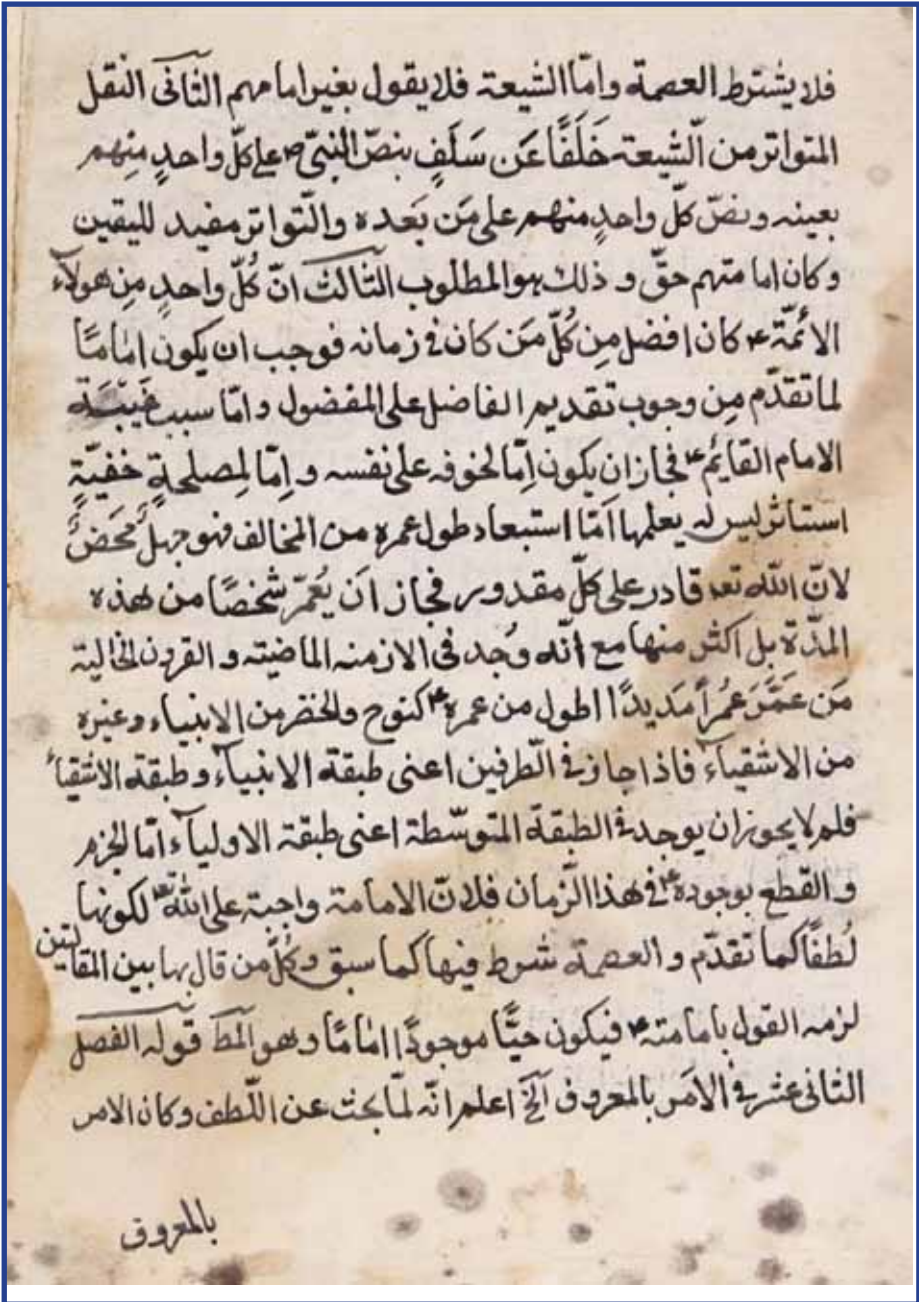 فلا يشترط العصمة وامّا الشيعة فلا يقول بغير امامهم الثّانى النقل
المتواتر من الّشيعة خَلَفًا عَن سَلَفٍ بنصّ النّبىّ ص على كلّ واحدٍ مِنهم
بعينه ونصّ كلّ واحدٍ منهم على مَن بَعده والّتواتر مفيد لليقين
وكان امامتهم حقّ و ذلك هو المطلوب الثّالث انّ كُلّ واحدٍ مِن هولآء
الائمّة ع كان افضل مِن كُلّ مَن كان فى زمانه فوجب ان يكون امامًا
لما تقدّم مِن وجوب تقديم الفاضل على المفضول وامّا سبب غَيبَة
الامام القايم ع فجاز ان يكون اِمّا لخوفه على نفسه و اِمّا لِمصلحةٍ خفيّةٍ
استاثر ليس له يعلمها اَمّا استبعاد طول عمره من المخالف فهو جهلٌ مَحضٌ
لانّ اللّه تعـ قادر على كلّ مقدور فجاز اَن يُعمّر شَخصًا من هذه
المدّة بل اكثر منها مع انّه وُجد فى الازمنه الماضيته و القرون الخالية
مَن عَمَّرَ عُمُراً مَديدًا اطول من عمره ع كنوح والخضر من الانبياء وغيره
من الاشقياء فاذا جاز فى الّطرفين اعنى طبقة الانبيآء وطبقة الاشقيآء
فلم لا يجوز ان يوجد فى الطبقة المتوسّطة اعنى طبقة الاوليآء امّا الجزم
و القطع بوجوده ع فى هذا الّزمان فلانّ الامامة واجبة على اللّه تع لكونها
لُطفًا كما تقدّم و العصمة شرط فيها كما سبق وكُلّ من قال بها بين المقالتين
لزمه القول بامامته ع فيكون حيًّا موجودًا امامًا وهو المط قوله الفصل
الثانى عشر فى الاَمر بالمعروف الخ اعلم انّه لمّا بحث عن اللّطف وكان الامر
بالمعروف